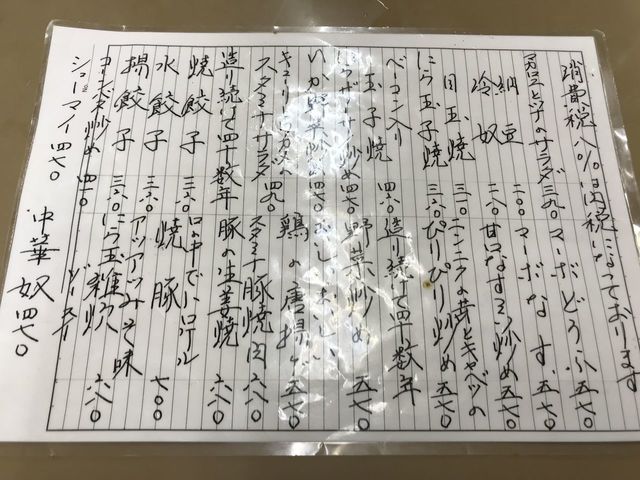 消費税八%は内税になっております
アボカドとツナのサラダ 三九〇 マーボどうふ 五七〇
納豆 二〇〇 マーボなす 五七〇
冷奴 二〇〇 甘口なすみそ炒め 五七〇
目玉焼 三一〇 ニンニクの芽とキャベツの
にら玉子焼 三六〇 ぴりぴり炒め 五七〇
ベーコン入り
玉子焼 四六〇 造り続けて四十数年
野菜炒め 五七〇
いか野菜炒め 四七〇 おいしいおいしい
鶏の唐揚げ 五七〇
スタミナサラダ 四九〇 スタミナ豚焼肉 六八〇
造り続けて四十数年 豚の生姜焼 六八〇
焼餃子 三六〇 口の中でトロケル
水餃子 三六〇 焼豚 七〇〇
揚餃子 三六〇 アツアツみそ味
にら玉雑炊 六八〇
シューマイ 四七〇 中華奴 四七〇